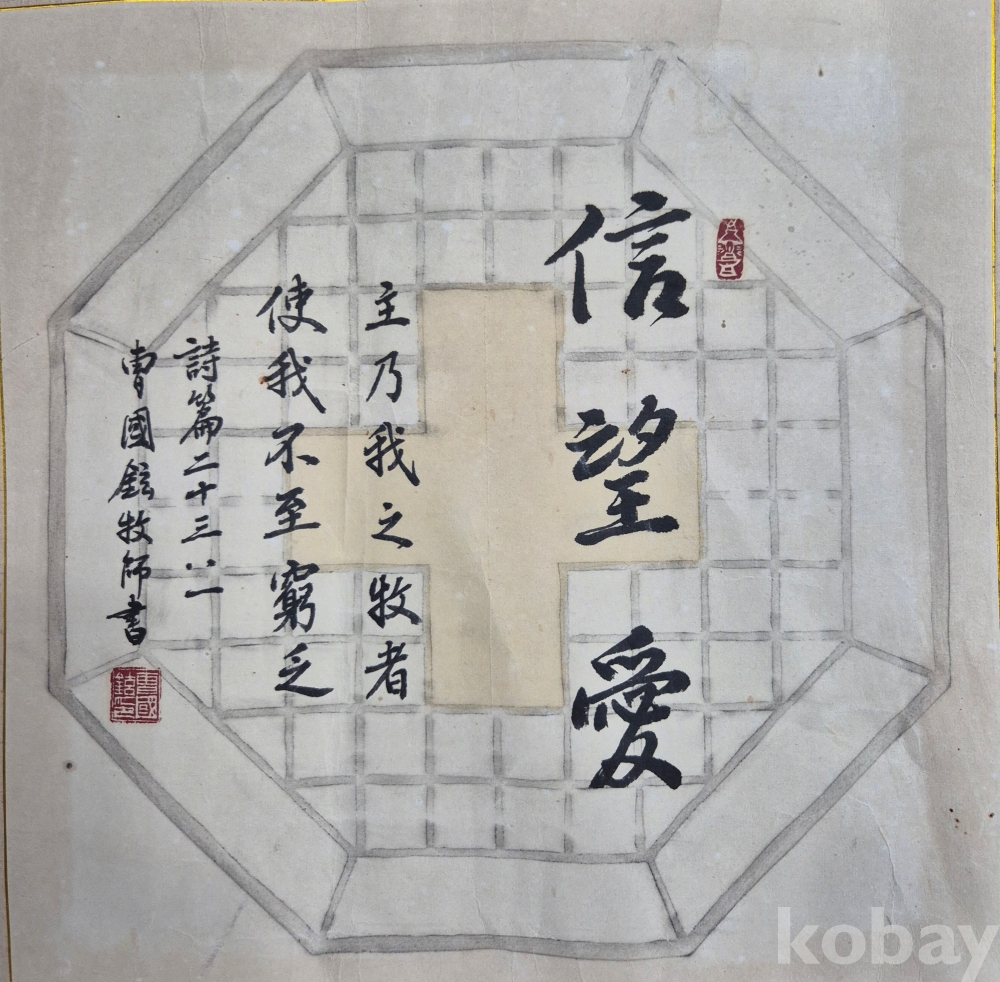 信望愛
主乃我之牧者
使我不至窮乏
詩篇二十三:一
曹國鉉牧師書
kobay